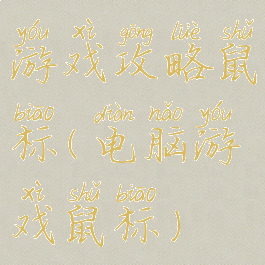 yóu xì gōng lüè shǔ
游戏攻略鼠
biāo diàn nǎo yóu
标(电脑游
xì shǔ biāo
戏鼠标)